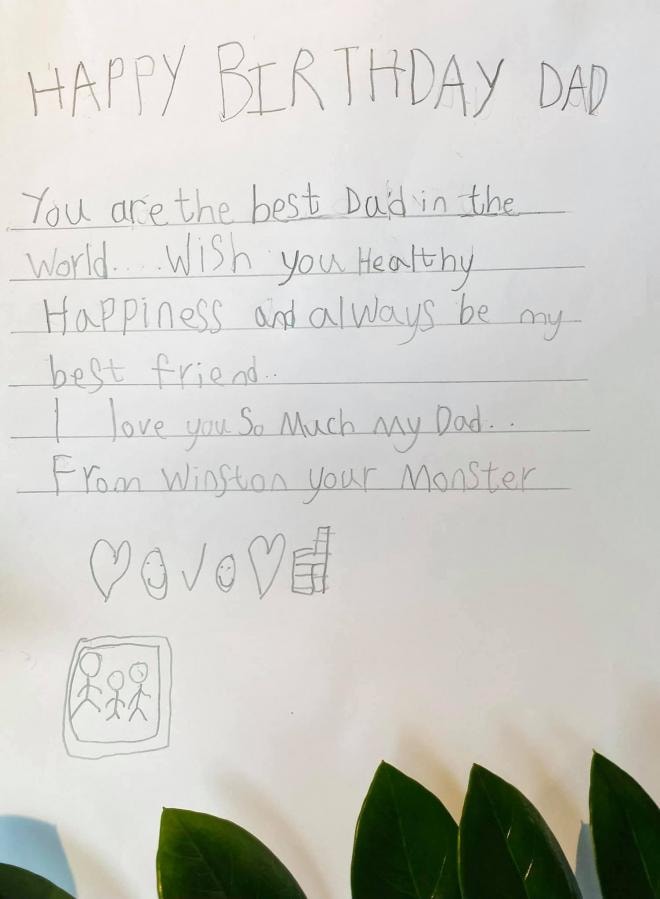 HAPPY BIRTHDAY DAD
You are the best Dad in the
World.... Wish you Healthy
Happiness and always be my
best friend..
I love you So Much My Dad..
From Winston your Monster